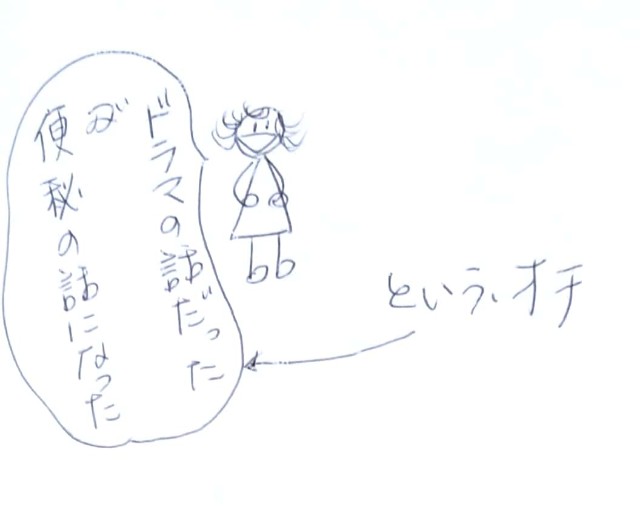 ドラマの話だった
が
便秘の話になった
という、オチ